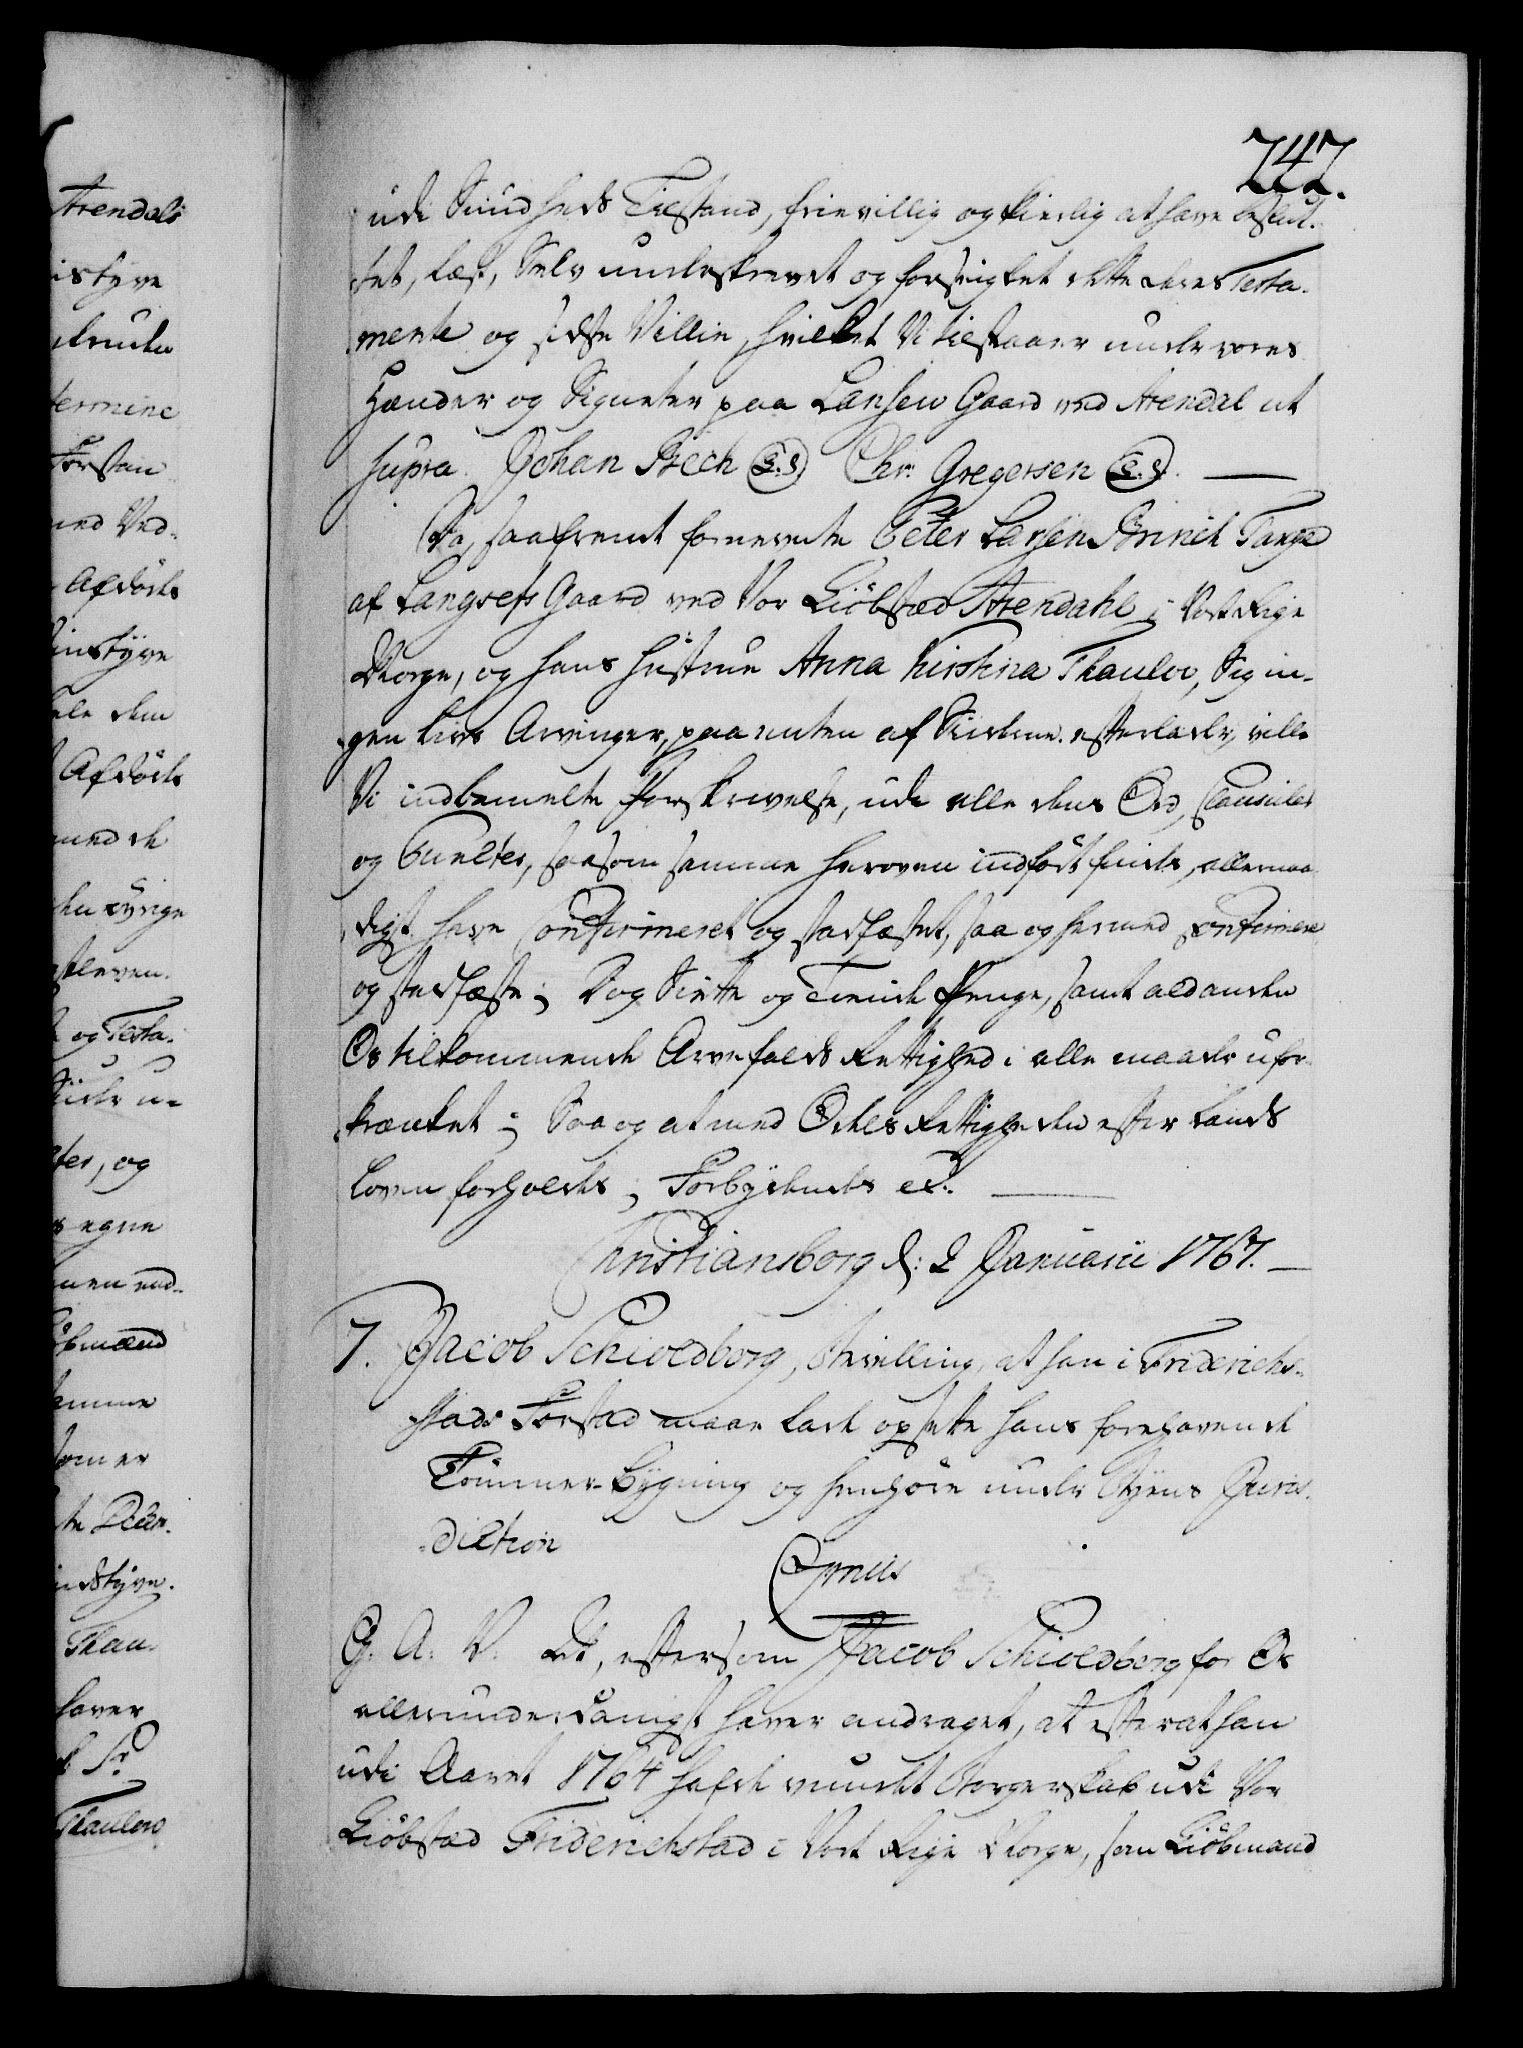 747.
udi Sundheds Tilstand, frievillig og kierlig at have beslut-
tet, læst, Selv underskrevet og forseiglet dette deres Testa-
mente og sidste Villie, hvilket Vi tilstaaer under vores
Hænder og Signeter paa Lansen Gaard ved Arendal ut
supra. Johan Bech (L.S) Chr. Gregersen (L.S). —
Da, saafremt fornevnte Peter Larsen Brinch Tange
af Langsets Gaard ved Vor Kiöbstæd Arendahl i Vort Rige
Norge, og hans Hustrue Anna Kirstina Thaulov, Sig in-
gen Livs Arvinger, paa nuten af Siderne efterlade, ville
Vi indbemelte Forskrivelse, udi alle dens Ord, Clausuler
og Puncter, saasom samme heroven indfört findes, allernaa-
digst have Confirmeret og stadfæstet, saa og hermed Confirmere
og stadfæste; Dog Siette og Tiende Penge, samt ald anden
Os tilkommende Arvefalds Rettighed i alle maader ufor-
krænket; Saa og at med Odels Rettigheden efter Lands
Loven forholdes; Forbydendes etc. —
Christiansborg d: 2 Januarii 1767. —
7. Jacob Schioldborg, Bevilling, at han i Friderichs-
stads Forstad maae lade opsette hans forehavende
Tömmer-Bygning og henhöre under Byens Juris-
diction
Gratis
C. A. V. At, eftersom Jacob Schioldborg for Os
allerunderdanigst haver andraget, at efterat han
udi Aaret 1764 hafde vundet Borgerskab udi Vor
Kiöbstæd Friderichstad i Vort Rige Norge, som Kiöbmand